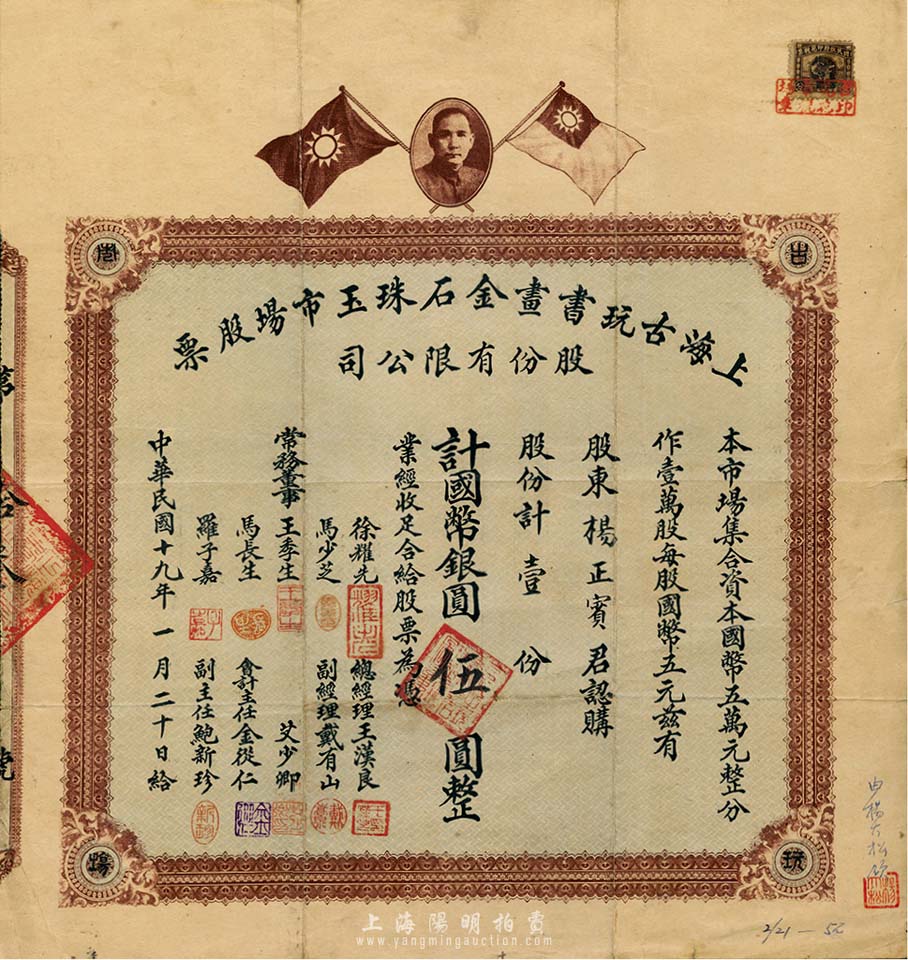 上海古玩書畫金石珠玉市場股票
股份有限公司
本市場集合資本國幣五萬元整分
作壹萬股每股國幣五元茲有
股東楊正賓君認購
股份計壹份
計國幣銀圓伍圓整
業經收足合給股票為憑
徐耀先
總經理王漢良
馬少芝
副經理戴有山
常務董事王季生
艾少卿
馬長生
會計主任金從仁
羅子嘉
副主任鮑新珍
中華民國十九年一月二十日給
古
玩
市
場
第
號
由楊
2/21—5元
上海陽明拍賣
www.yangmingauction.com